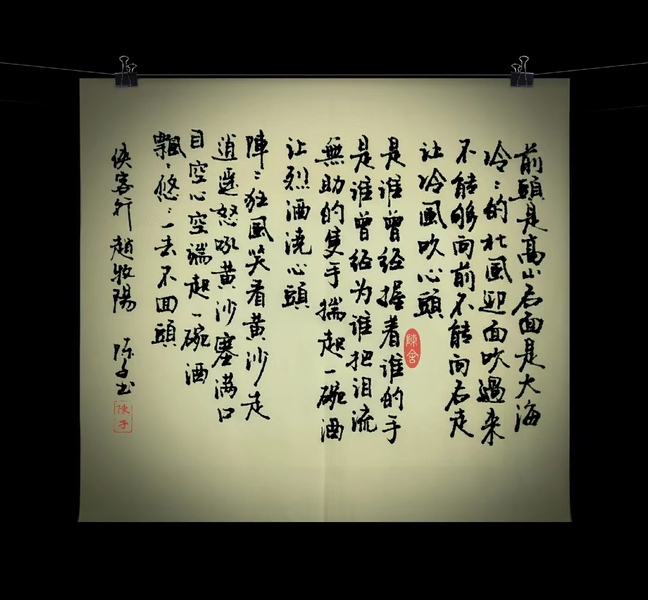 前頭是高山后面是大海
冷〻的北風迎面吹過来
不能够向前不能向后走
让冷風吹心頭
是谁曾经握着谁的手
是谁曾经为谁把泪流
無助的隻手揣起一碗酒
让烈酒澆心頭
陣〻狂風笑看黄沙走
逍遥怒吼黄沙塞满口
目空心空端起一碗酒
飄〻悠〻一去不回頭
侠客行 趙牧陽 陈子